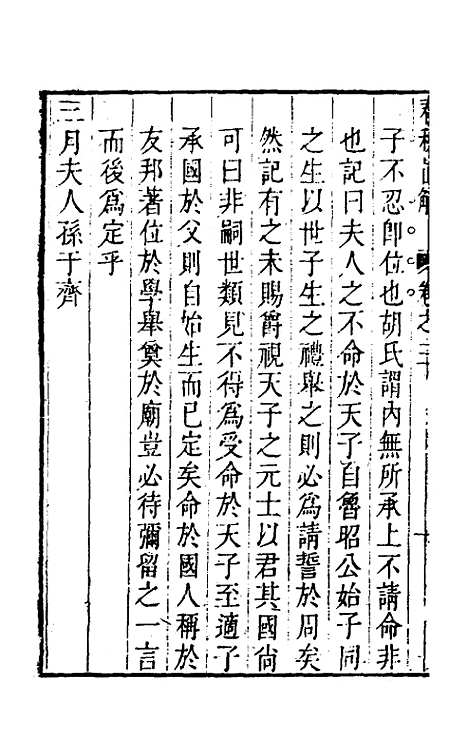 子不忍卽位也胡氏謂內無所承上不請命非
也記曰夫人之不命於天子自魯昭公始子同
之生以世子生之禮舉之則必爲請誓於周矣
然記有之未賜爵視天子之元士以君其國尙
可曰非嗣世類見不得爲受命於天子至適子
承國於父則自始生而已定矣命於國人稱於
友邦著位於學舉奠於廟豈必待彌留之一言
而後爲定乎
三月夫人孫于齊